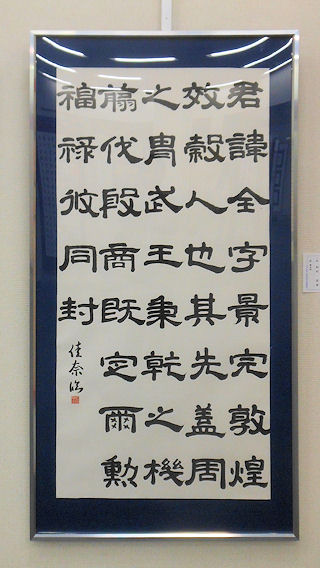 君諱全字景完敦煌
效穀人也其先蓋周
之胄武王秉乾之機
翦伐殷商既定爾勳
福祿攸同封
佳奈臨